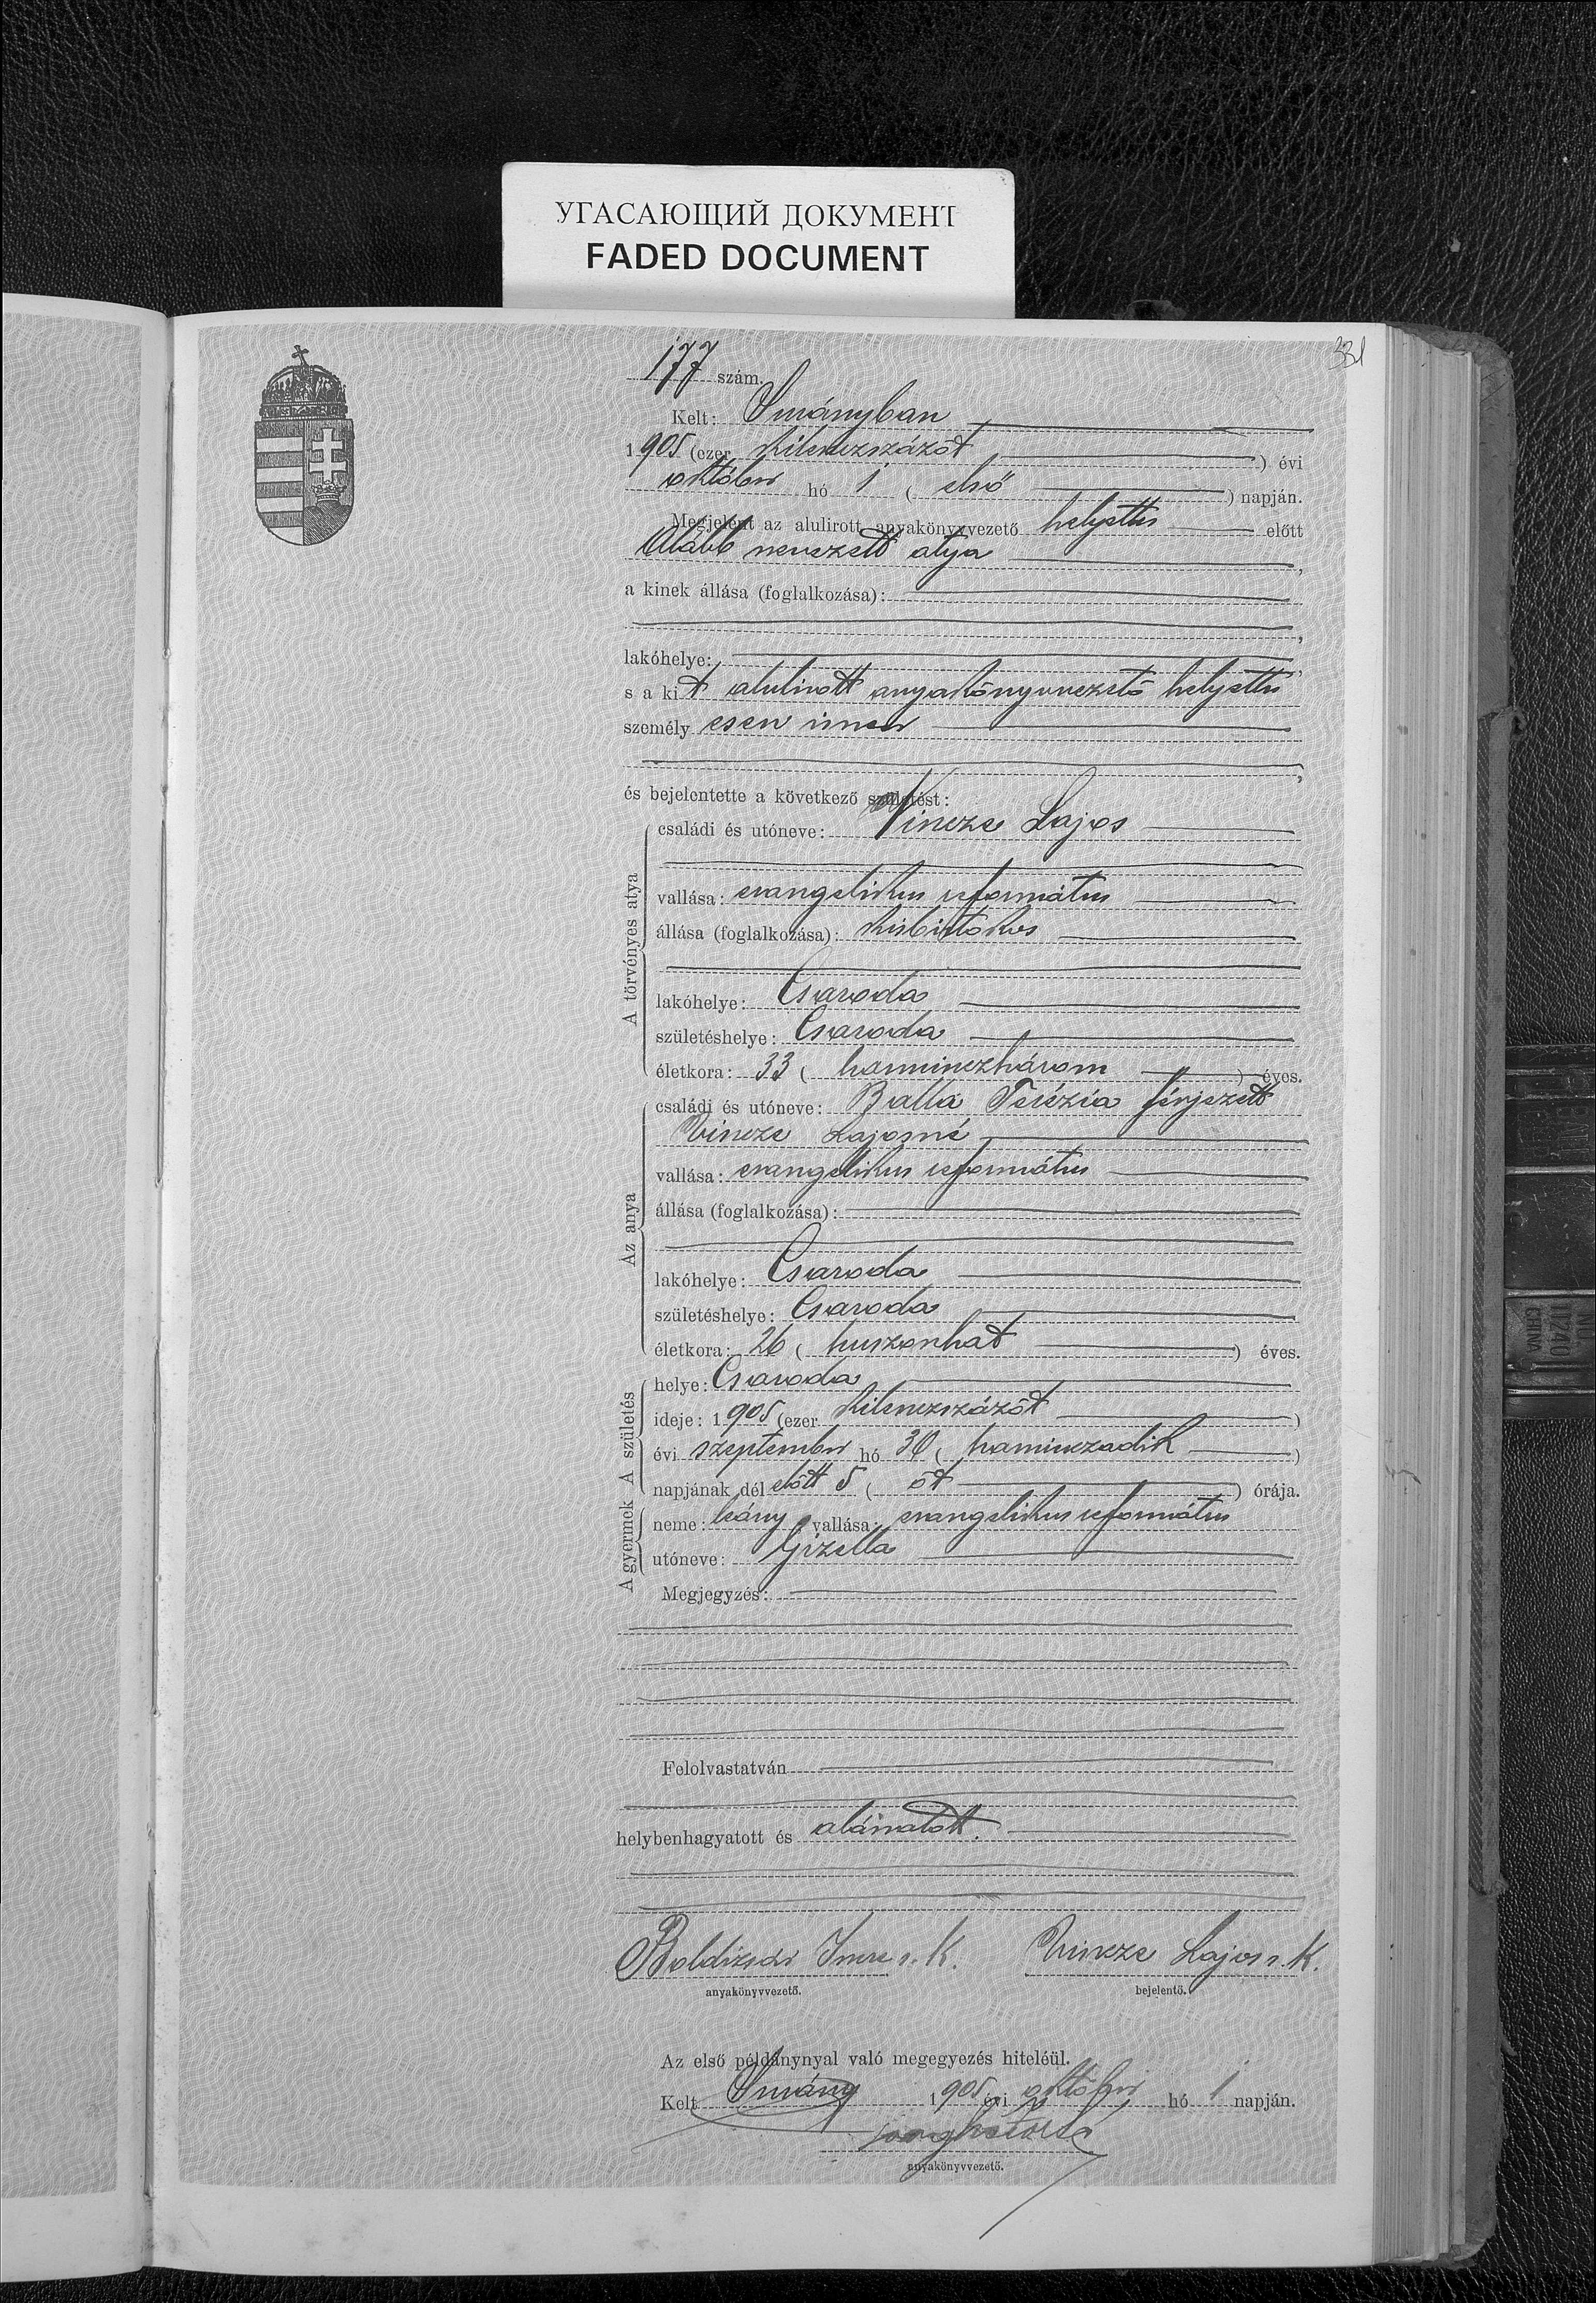 УГАСАЮЩИЙ ДОКУМЕНТ
FADED DOCUMENT
331
177 szám.
Kelt: Surányban
1905 (ezer kilenczszázöt) évi
október hó 1 (első) napján.
Megjelent az alulirott anyakönyvvezető helyettes előtt
Alább nevezett atya,
a kinek állása (foglalkozása):
,
lakóhelye:,
s a kit alulirott anyakönyvvezető helyettes
személyesen ismer
,
és bejelentette a következő születést:
A törvényes atya
családi és utóneve: Vincze Lajos
vallása: evangelikus református
állása (foglalkozása): kisbirtokos
lakóhelye: Csaroda
születéshelye: Csaroda
életkora: 33 (harminczhárom) éves.
Az anya
családi és utóneve: Balla Terézia férjezett
Vincze Lajosné
vallása: evangelikus református
állása (foglalkozása):
lakóhelye: Csaroda
születéshelye: Csaroda
életkora: 26 (huszonhat) éves.
A születés
helye: Csaroda
ideje: 1905 (ezer kilenczszázöt)
évi szeptember hó 30 (harminczadik)
napjának dél előtt 5 (öt) órája.
A gyermek
neme: leány, vallása: evangelikus református
utóneve: Gizella
Megjegyzés:
Felolvastatván
helybenhagyatott és aláiratott.
Boldizsár Imre s. k. Vincze Lajos s. k.
anyakönyvvezető. bejelentő.
Az első példánynyal való megegyezés hiteléül.
Kelt Surány 1905 évi október hó 1 napján.
anyakönyvvezető.